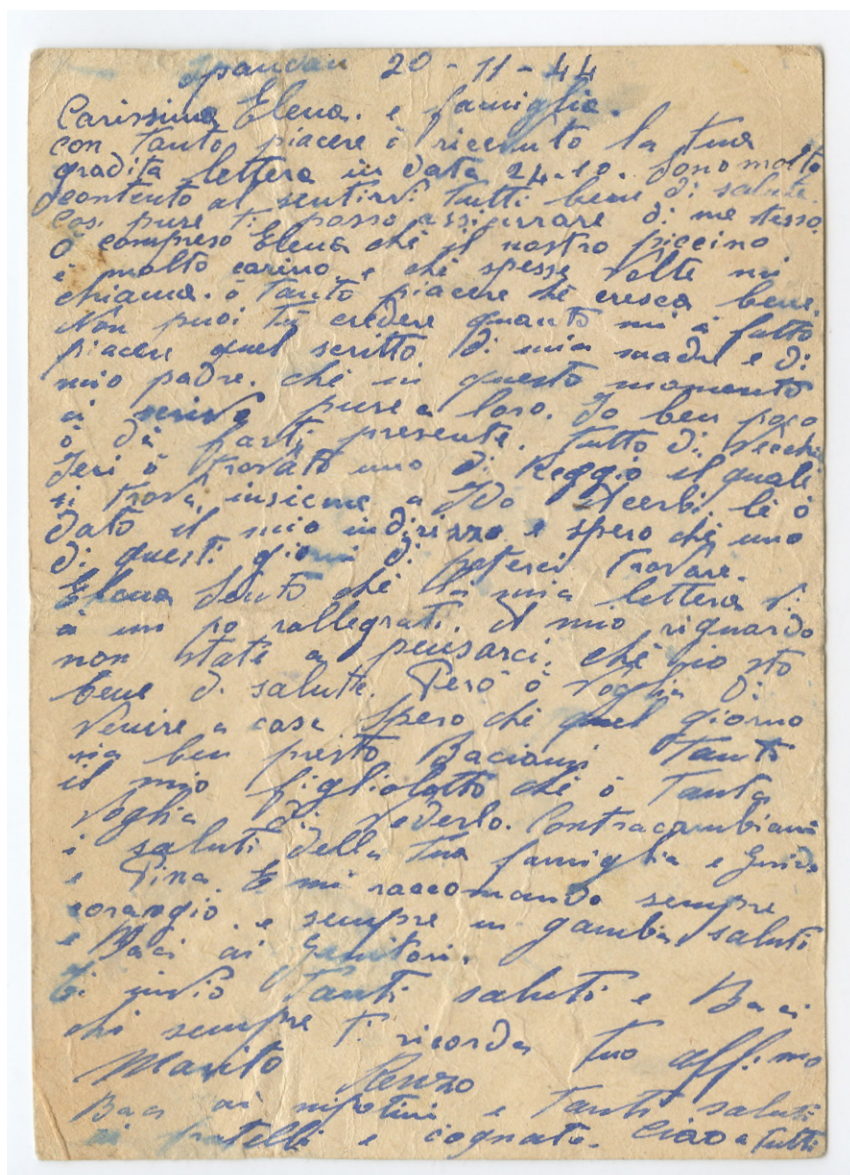 Spandau 20-11-44
Carissima Elena. e famiglia.
con tanto piacere ò ricevuto la tua
gradita lettera in data 24-10. Sono molto
contento al sentirvi tutti bene di salute.
Cosi pure ti posso assicurrare di me stesso.
ò compreso Elena che il nostro piccino
è molto carino. e che spesse volte mi
chiama. ò tanto piacere che cresca bene.
Non puoi tu credere quanto mi à fatto
piacere quel scritto di mia madre e di
mio padre. che in questo momento
ci scrivo pure a loro. Io ben poco
ò da farti presente. tutto di vecchio
Ieri ò trovato uno di Reggio il quale
si trova insieme a Ido Acerbi. le ò
dato il mio indirizzo e spero che uno
di questi giorni di poterci trovare.
Elena sento che la mia lettera vi
à un po rallegrati. Al mio riguardo
non state a pensarci. che io sto
bene di salute. Però ò voglia di
venire a casa spero che quel giorno
sia ben presto Baciami tanto
il mio figliolotto che ò tanta
voglia di vederlo. Contracambiami
i saluti della tua famiglia e Guido
e Pina. E mi raccomando sempre
coraggio. e sempre in gamba, saluti
e Baci ai Genitori.
Ti invio Tanti saluti e Baci
chi sempre ti ricorda tuo aff.mo
Marito Renzo
Baci ai nipotini e tanti saluti
ai fratelli e cognate. Ciao a tutti